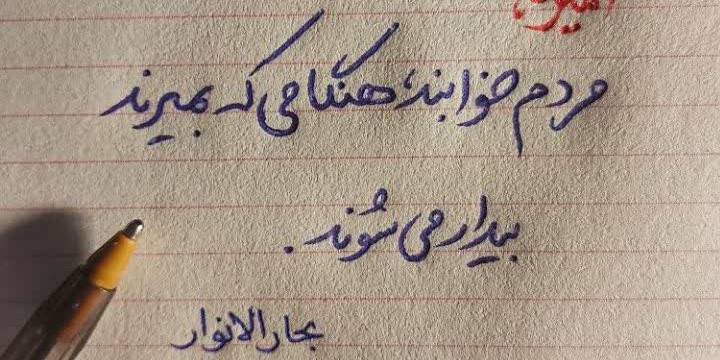 مردم خوابند، هنگامی که بمیرند
بیدار می شوند.
بحارالانوار